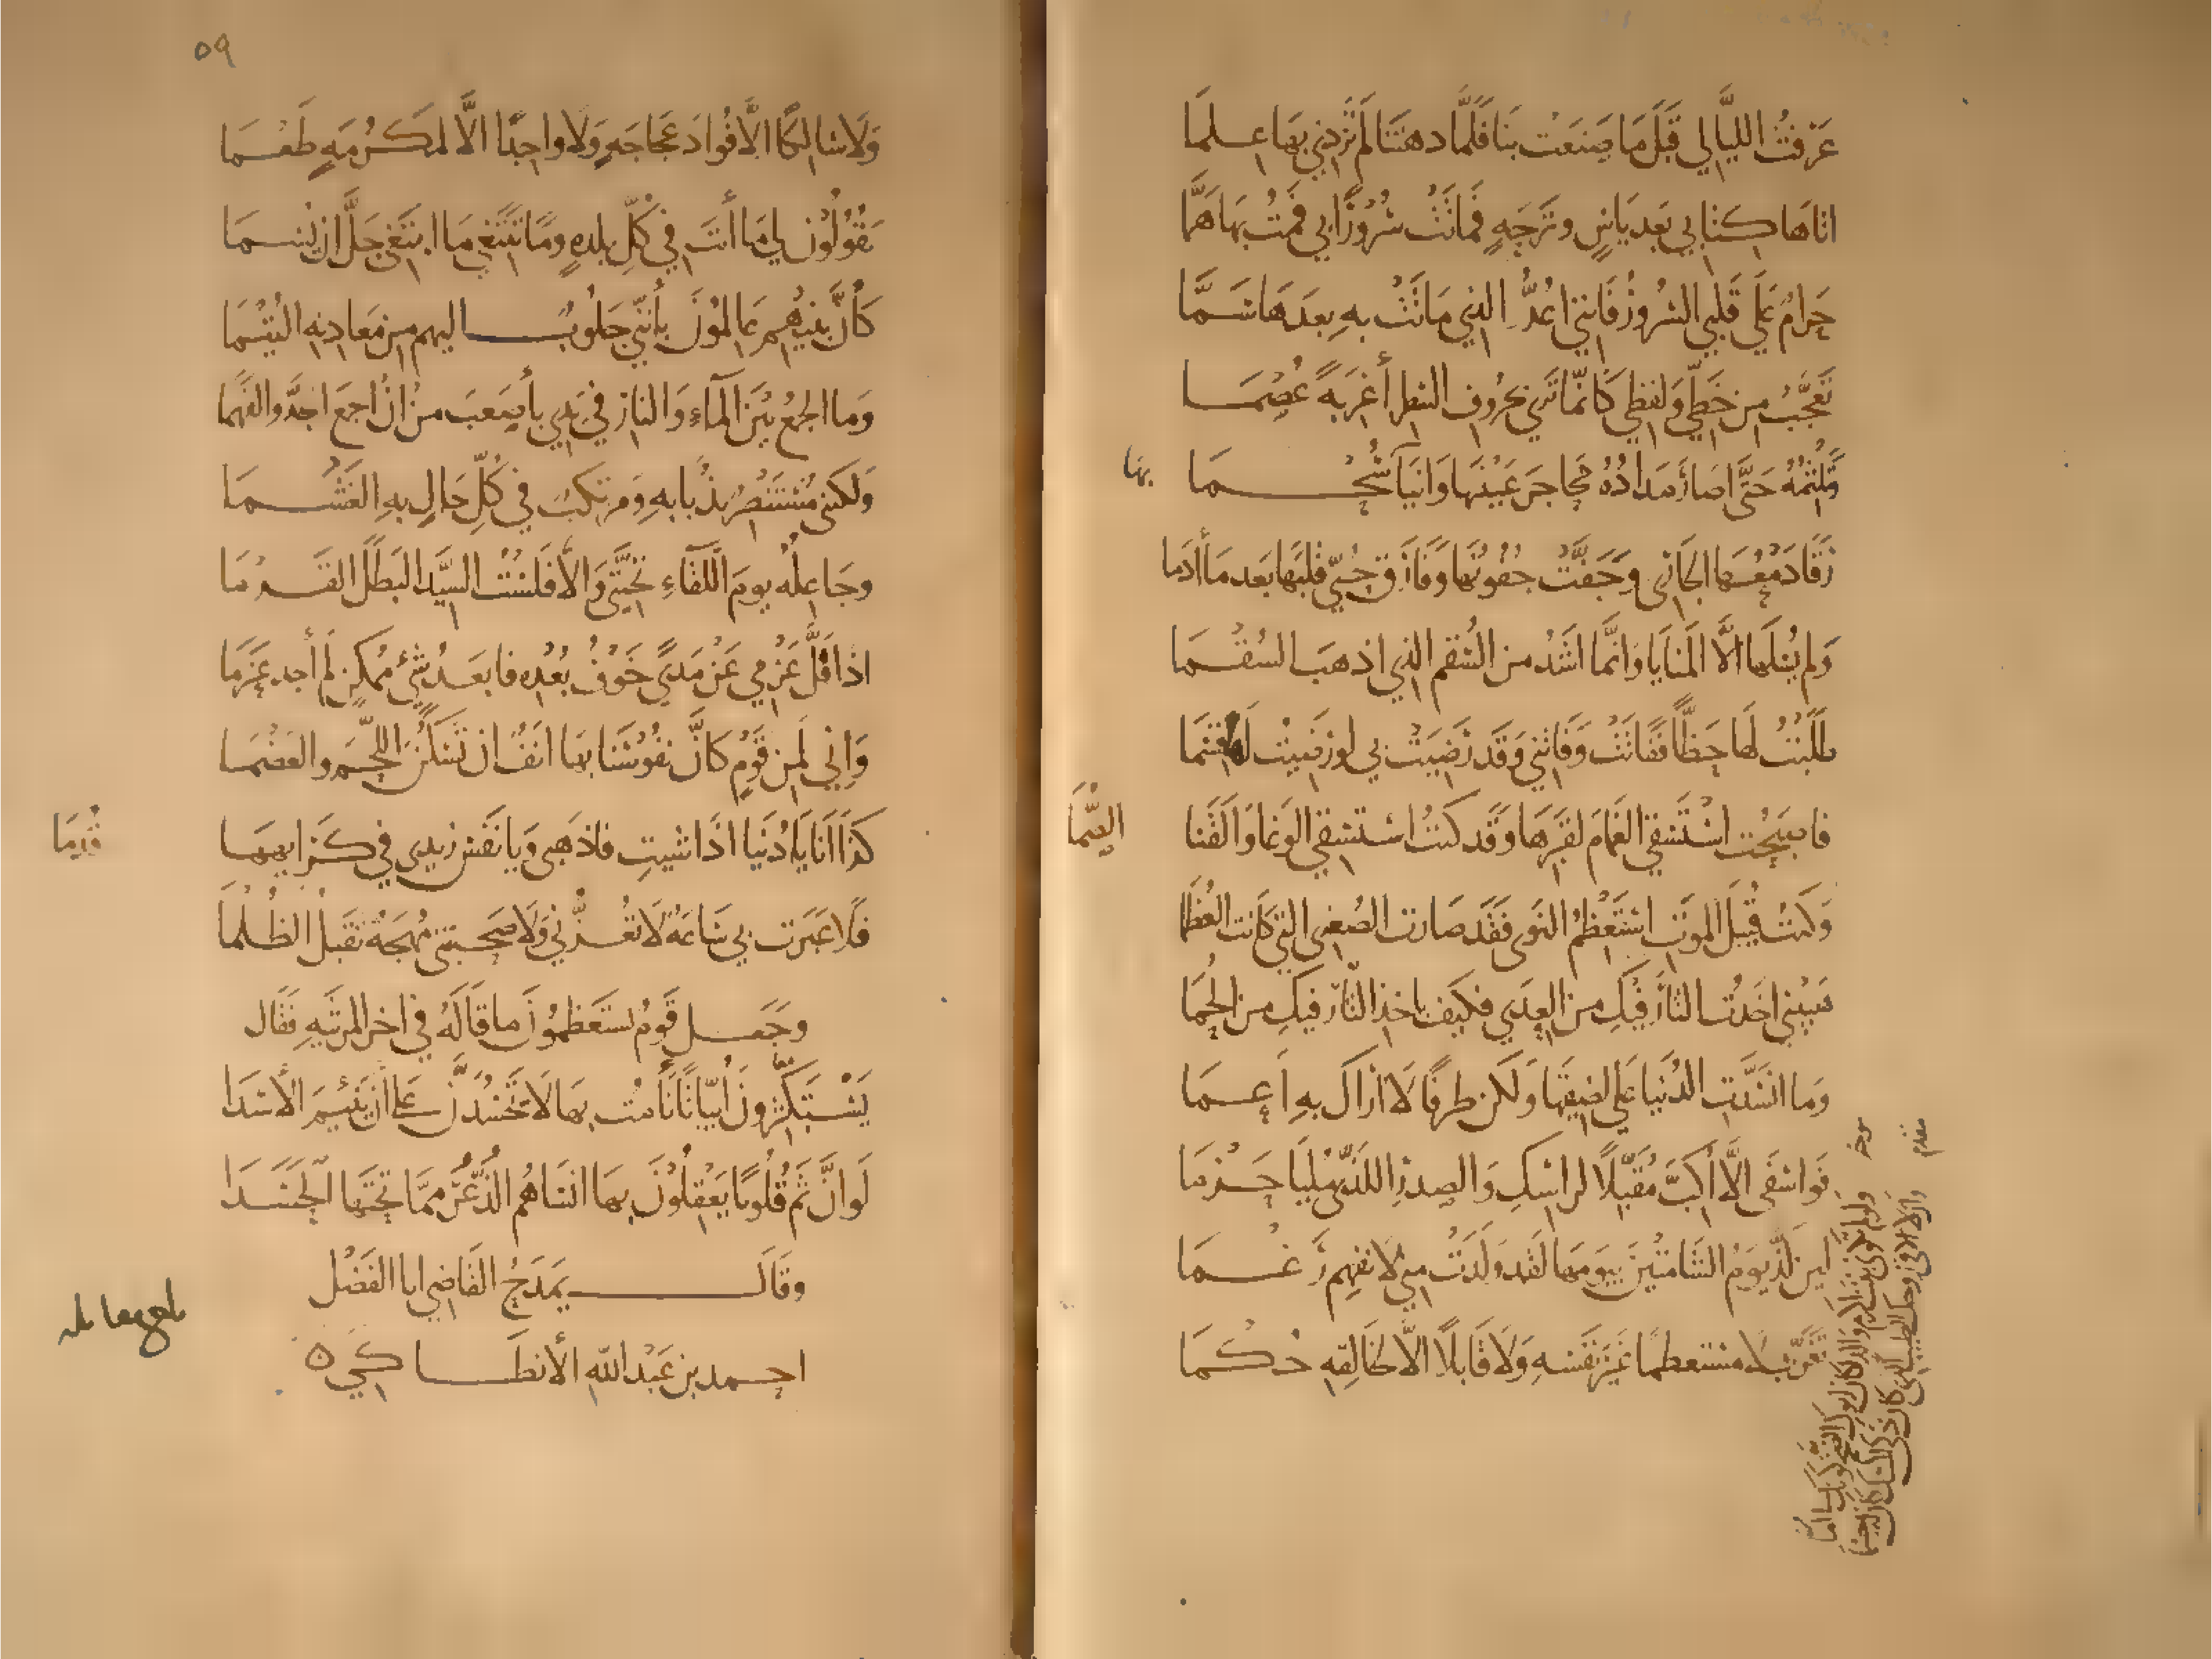 عَرَفتُ الليالي قَبلَ مَا صَنعَت بنَا فَلمَّا دهتنَا لَم تَزدني بهَا عِلمَا
اتاهَا كتابي بَعدَ يَاسٍ وتَرحَةٍ فمَاتَتْ سُرُورًا بي فمُتُّ بهَا هَمَّا
حَرامٌ عَلى قَلبي السُرُورُ فَانني اعُدُّ الذي مَاتَتْ بهِ بعدَهَا سَمَّا
تَعَجَّبُ مِن خَطِّي وَلَفظي كَانّمَا تَرى بحُروف السَطر أغربَةً عُصْمَا
وَتَلثمُهُ حَتَّى اصَارَ مدَادُهُ مَحَاجرَ عَيْنَيهَا وَانيَابَهَا سُحْمَا
بها
رَقَا دَمعُهَا الجَاري وَجَفَّتْ جفُونُهَا وَفَارَقَ حُبّي قلبَهَا بَعد مَا أدمَا
وَلم يُسْلهَا الَّا المنَايَا وَانَّمَا اشَدُّ منَ السُقم الذي اذهَبَ السُقْمَا
طَلَبْتُ لهَا حَظًّا فَفَاتَتْ وَفَاتَني وَقَد رَضِيَتْ بي لو رَضِيتُ لهَا قِسْمَا
فاصبَحْت استَسقي الغَمَامَ لقَبرهَا وَقَد كنتُ استَسقي الوَغَا وَالقَنا
الصُّمَّا
وَكنتُ قُبَيلَ الموتِ استَعظِمُ النَوى فَقَد صَارت الصُغرى التي كانت العُظمَا
هَبيني اخَذتُ الثَأرَ فيكِ منَ العِدَى فكيفَ باخذِ الثَار فيكِ من الحُمَّا
وَمَا انسَدَّتِ الدُنيَا عَلي لضيقهَا وَلكن طرفًا لَا ارَاكَ بهِ أعمَا
فَوا اسَفَى الَّا أكبَّ مُقَبِّلًا لراسكِ وَالصدر اللذَي مُليَا حَزمَا
لَين لَذَّ يَومُ الشَامتينَ بيَومهَا لَقد وَلَدَتْ مني لانفهم رَغمَا
تَغَرَّبَ لا مستعظمًا غَيرَ نَفسهِ وَلَا قَابلًا الَّا لخَالقِهِ حُكمَا
مؤخر
مقدم
٥٩
وَلَا سَالكًا الَّا فُوادَ عَجَاجَةٍ وَلَا واجدًا الَّا لمَكرُمَةٍ طَعْمَا
يَقُولُونَ لي مَا أنتَ في كُلِّ بلدهٍ وَمَا تَبتَغي مَا ابتَغي جَلَّ ان يُسمَا
كَأنَّ بنيهم عَالمُونَ بأنَّني جَلُوبٌ اليهم مِن مَعَادِنهِ اليُتْمَا
وَما الجمعُ بَيْنَ المآءِ وَالنار في يَدي بأصعَبَ من ان اجمَع الجَدَّ والفَهمَا
وَلكنني مُستَنصِرٌ بذُبابهِ وَمرتكبٌ في كُلِّ حَالٍ بهِ الغَشمَا
وجَاعِلُه يومَ اللقَاءِ تَحِيَّتي وَالَّا فَلَستُ السيَّدَ البَطَلَ القَرْمَا
اذا فَلَّ عَزمي عَن مَدىً خَوفُ بُعْدِه فابعَدُ شيءٍ مُمكِن لم أجد عَزمَا
وَاني لَمِن قَومٍ كَأنَّ نفُوسَنَا بهَا انَفٌ ان تَسْكنَ اللحَم والعَظمَا
كَذا انَا يَا دُنيَا اذَا شيتِ فاذهَبي وَيا نَفسُ زيدي في كرايهها
قُدمَا
فلَا عَبَرَت بي سَاعَةٌ لَا تُعزُّني وَلَا صَحبتني مُهجَةٌ تَقبلُ الظُلمَا
وجَعل قَومٌ يستَعظمُونَ ما قَالَهُ في آخر المرثيَهِ فَقَال
يَسْتَكثِرونَ أبيَاتًا نَأمتُ بها لَا تَحسُدَنَّ على أن يَنْئِمَ الأسَدَا
لَو انَّ ثَمَّ قُلُوبًا يَعْقِلُوْنَ بهَا انسَاهُمُ الذُّعْرُ ممَّا تحتَهَا الحَسَدَا
وقَالَ يمدَحُ القَاضي ابا الفَضْل
احمد بن عَبْد اللّه الأنطاكي ٥